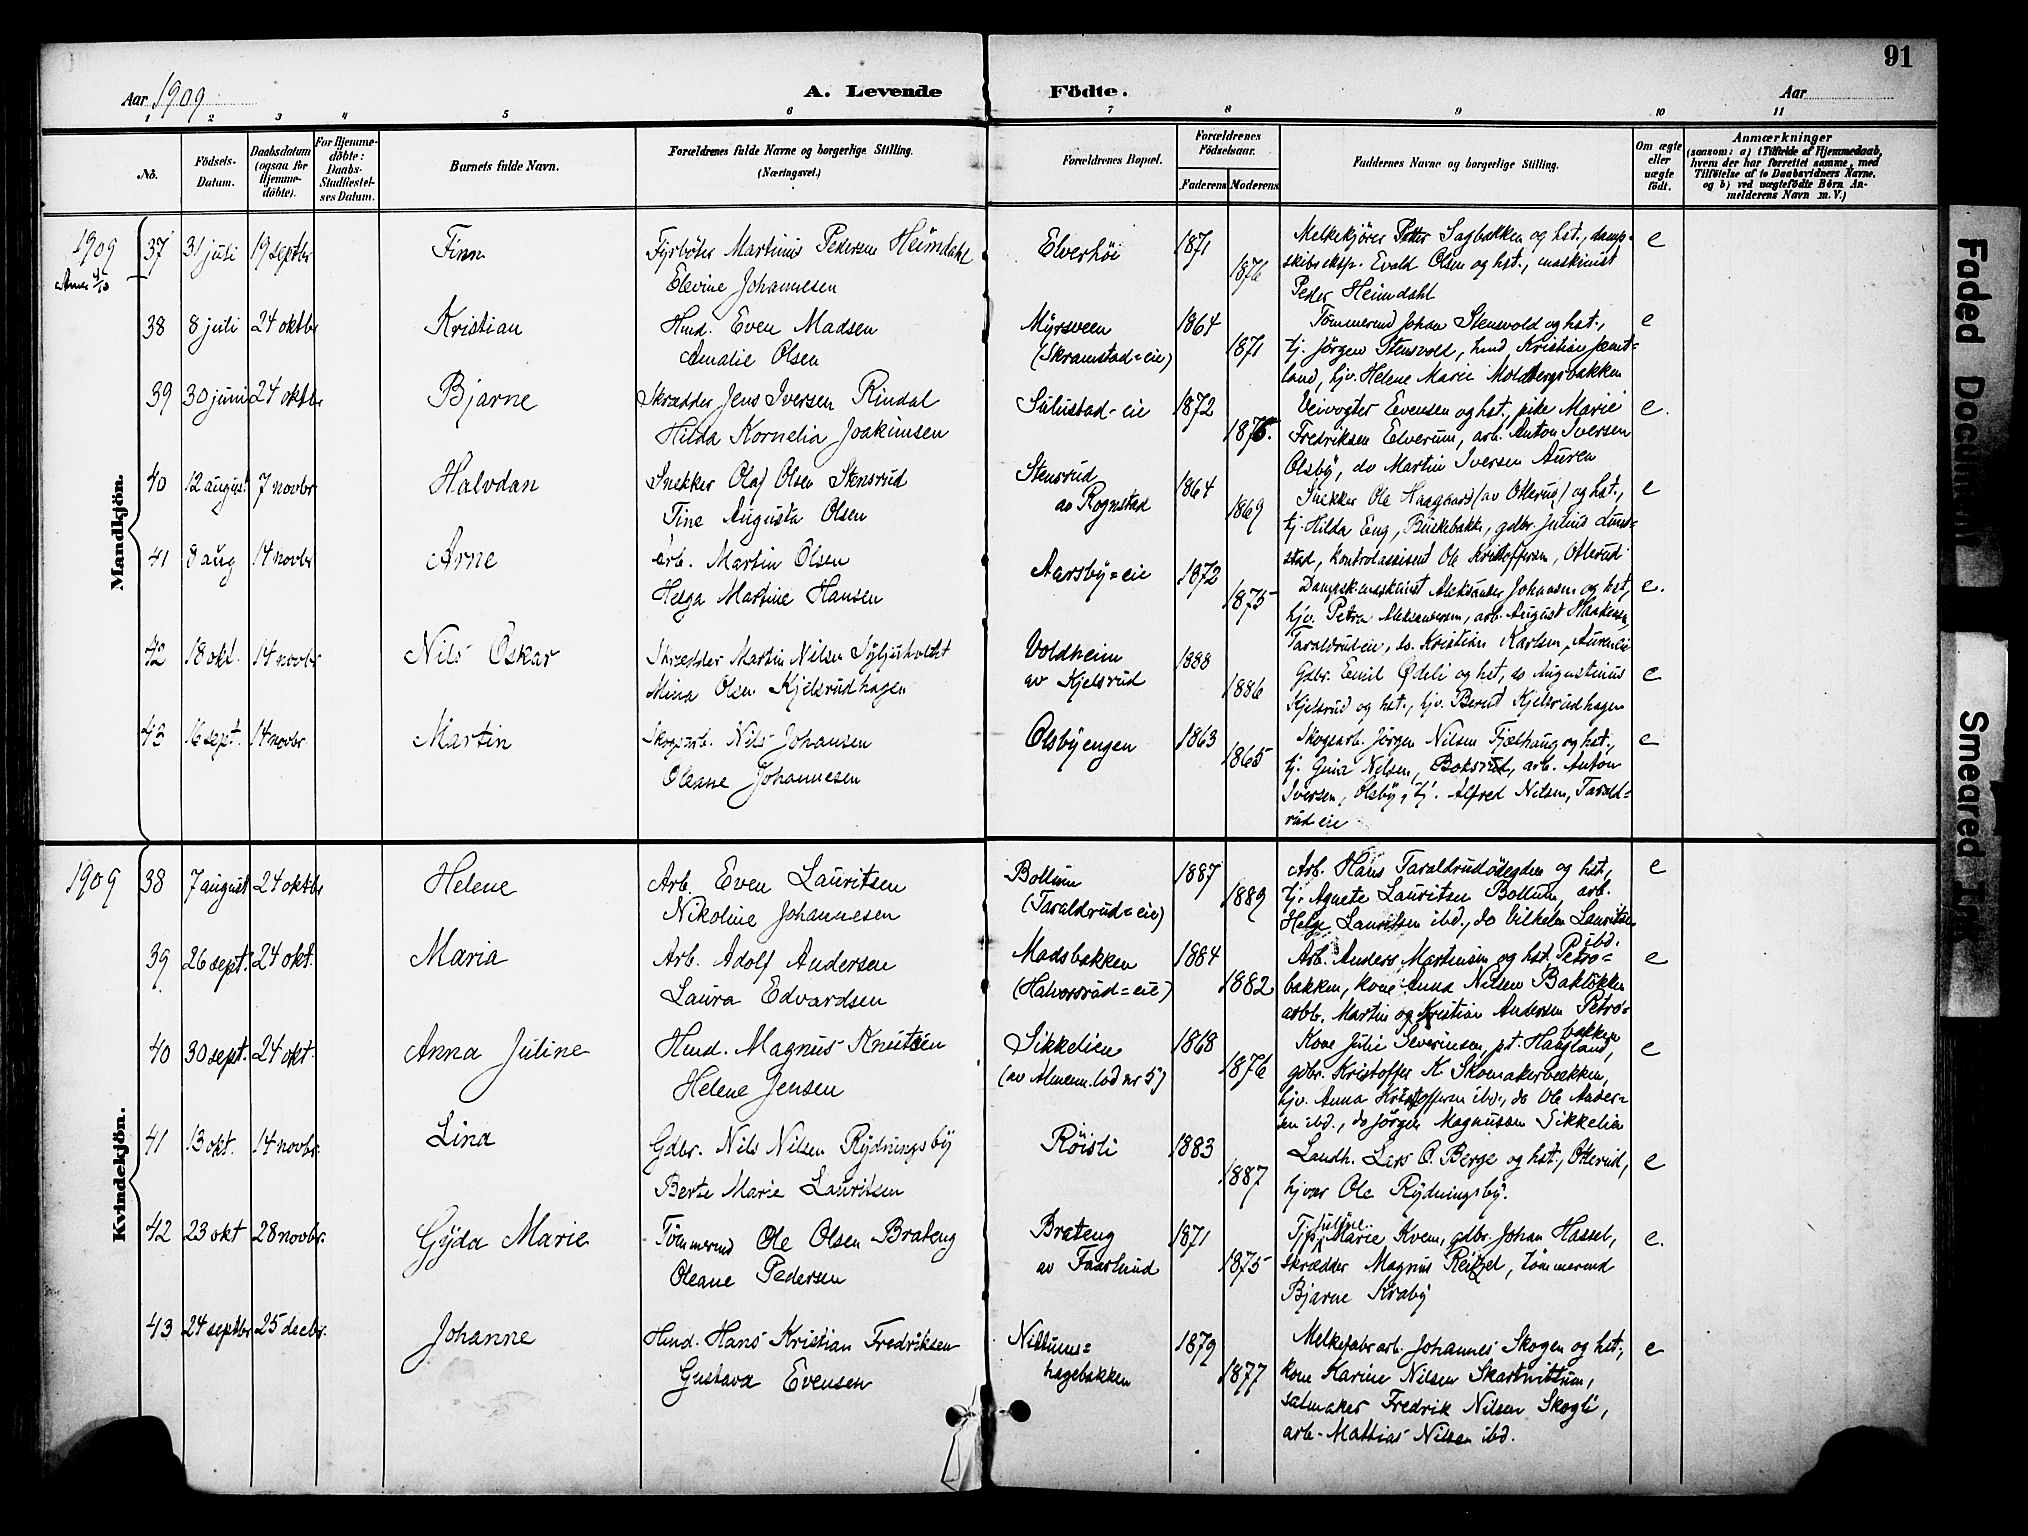 91
Aar 1909 A. Levende Födte. Aar
1 2 3 4 5 6 7 8 9 10 11
No. Födsels-Datum. Daabsdatum (ogsaa for Hjemme-döbte). For Hjemme-döbte: Daabs-Stadfæstel-ses Datum. Barnets fulde Navn. Forældrenes fulde Navne og borgerlige Stilling. (Næringsvei.) Forældrenes Bopæl. Forældrenes Födselsaar. Faderens Moderens Faddernes Navne og borgerlige Stilling. Om ægte eller uægte födt. Anmærkninger (saasom: a) i Tilfælde af Hjemmedaab, hvem der har forrettet samme, med Tilföielse af to Daabsvidners Navne. og b) ved uægtefödte Börn An-melderens Navn m. V.)
Mandkjön.
1909 37 31 juli 19 septbr Finn Fyrböter Martinus Pedersen Heimdahl Elverhöi 1871 Melkekjörer Petter Sagbakken og hst., damp- e
Elevine Johannesen 1876 skibseksp. Evald Olsen og hst., maskinist
Peder Heimdahl
38 8 juli 24 oktbr Kristian Hmd. Even Madsen Myrsveen 1864 Tömmermd Johan Stensvold og hst., e
Amalie Olsen (Skramstad=eie) 1871 tj. Jörgen Stensvold, hmd Kristian Jæmt=
land, hjv. Helene Marie Moldbergsbakken
39 30 juni 24 oktbr Bjarne Skrædder Jens Iversen Rindal Sulustad-eie 1872 Veivogter Evensen og hst., pike Marie e.
Hilda Kornelia Joakimsen 1876. Fredriksen Elverum, arb. Anton Iversen
Olsby, do Martin Iversen Auren
40 12 august 7 novbr Halvdan Snekker Olaf Olsen Stensrud Stensrud 1864 Snekker Ole Haagaard (av Otterud) og hst., e
Tine Augusta Olsen av Rognstad 1869 tj. Hilda Eng, Birkebakk, gdbr. Julius Lund=
stad, kontrolassistent Ole Kristoffersen, Otterud
41 8 aug 14 novbr Arne Arb. Martin Olsen Aarsby=eie 1872 Dampsk.maskinist Aleksander Johansen og hst, e.
Helga Martine Hansen 1875 hjv. Petra Aleksandersen, arb. August Haakensen
Taraldrudeie, do. Kristian Karlsen, Aureneie
42 18 okt. 14 novbr Nils Oskar Skrædder Martin Nilsen Voldheim 1888 Gdbr. Emil Ödeli og hst, do Augustinus e
Mina Olsen Kjelsrudhagen av Kjelsrud 1886 Kjelsrud og hst., hjv. Bernt Kjelsrudhagen
43 16 sept. 14 novbr Martin Skogsarb. Nils Johansen Olsbyengen 1863 Skogsarb. Jörgen Nilsen Fjælhaug og hst., e
Oleane Johannesen 1865 tj. Gina Nilsen, Boksrud, arb. Anton
Iversen, Olsby, tj. Alfred Nilsen, Tarald=
rudeie
Kvindekjön.
1909 38 7 august 24 oktbr Helene Arb. Even Lauritsen Bollum 1887 Arb. Hans Taraldrudödegden og hst, e
Nikoline Johannesen (Taraldrud=eie) 1889 tj. Agnete Lauritsen Bollum, arb.
Helge Lauritsen ibd., do Vilhelm Lauritsen
ibd.
39 26 sept. 24 okt. Maria Arb. Adolf Andersen Madsbakken 1884 Arb. Anders Martinsen og hst. Petro= e
Laura Edvardsen (Halvorsrud=eie) 1882 bakken, kone Anna Nilsen Baklökken
arbb. Martin og Kristian Andersen Petro-
bakken
40 30 sept. 24 okt. Anna Juline Hmd. Magnus Knutsen Sikkelien 1868 Kone Julie Severinsen, p.t. Haugland, e
Helene Jensen (av Almenn. lod nr 5) 1876 gdbr. Kristoffer K Skomakerbækken,
hjv. Anna Kristoffersen ibd., do Ole Ander=
sen ibd., do Jörgen Magnussen Sikkelia
41 13 okt. 14 novbr. Lina Gdbr. Nils Nilsen Rydningsby Röisli 1883 Landh. Lars O. Berge og hst., Otterud, e
Berte Marie Lauritsen 1887 hjvær Ole Rydningsby.
42 23 okt 28 novbr. Gyda Marie Tömmermd Ole Olsen Brateng Brateng 1871 Juline Marie Kvem, gdbr. Johan Hassel, e.
Oleane Pedersen av Faarlund 1875 skrædder Magnus, tömmermd
Bjarne Kraby
43 24 septbr 25 decbr. Johanne Hmd. Hans Kristian Fredriksen Nittums= 1879 Melkefabrarb. Johannes Skogen og hst., e
Gustava Evensen hagebakken 1877 kone Karine Nilsen Skartnittum,
salmaker Fredrik Nilsen Skogli,
arb. Mattias Nilsen ibd.
Faded Document
Smeared Ink